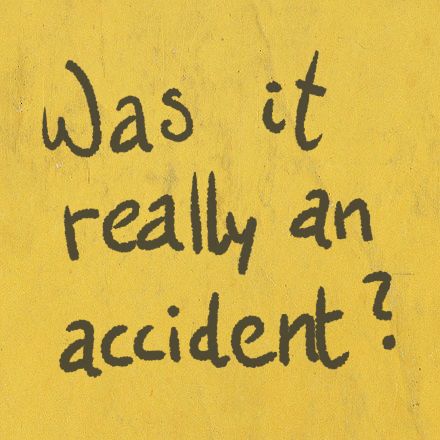 Was it
really an
accident?